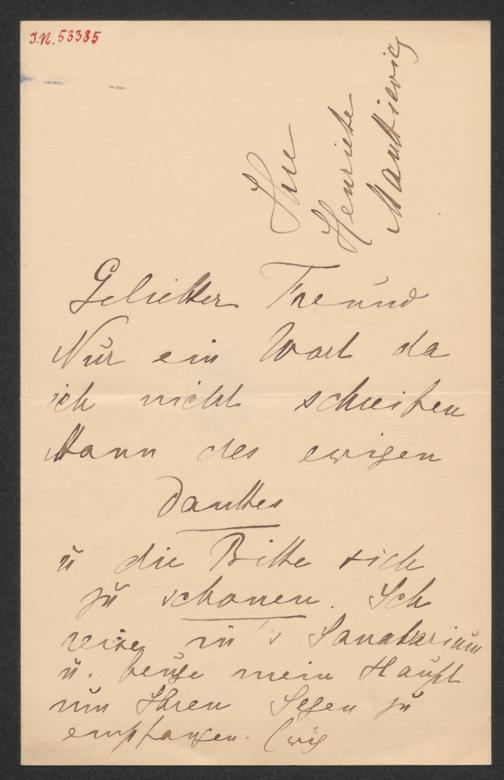 I.N. 53385
Geliebter Freund
Nur ein Wort da
ich nicht schreiben
kann des ewigen
Dankes
ü die Bitte sich
zu schonen. Ich
reise in's Sanatorium
u. beuge mein Haupt
um Ihren Segen zu
empfangen. Ewig
Ihre
Henriette
Mankiewicz